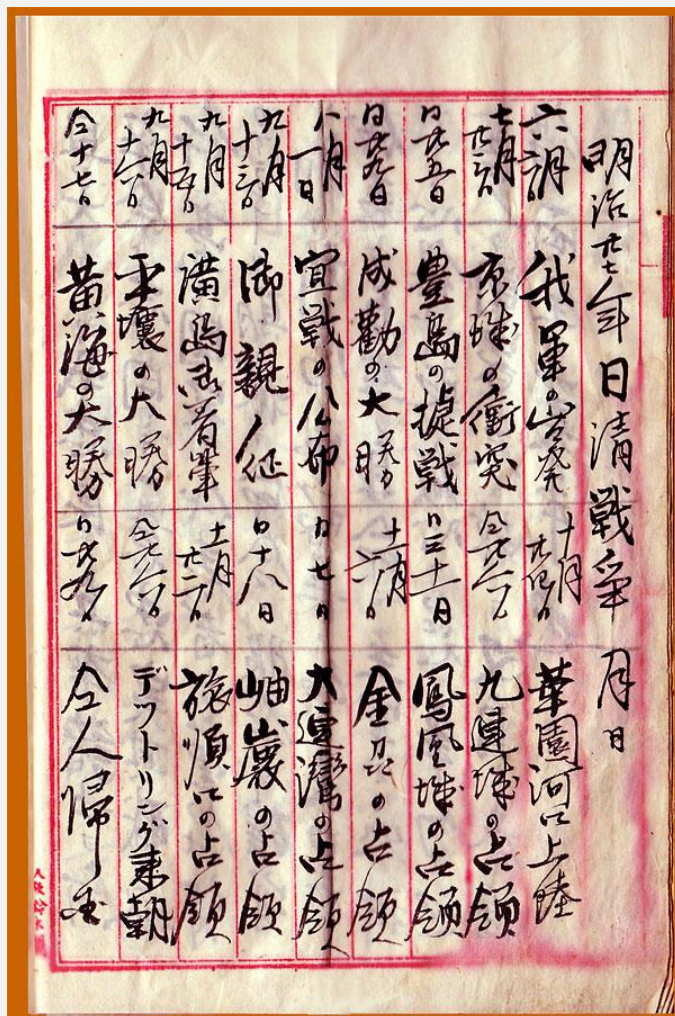 明治廿七年日清戦争 月日
六月 我軍の出発
七月廿三日 京城の衝突
同廿五日 豊島の捷戦
同廿九日 成勸の大勝
八月一日 宣戦の公布
九月十三日 御親征
九月十五日 廣島御着輦
九月十六日 平壤の大勝
仝十七日 黄海の大勝
十月廿四日 華園河口上陸
仝廿六日 九連城の占領
同三十一日 鳳凰城の占領
十一月六日 金州の占領
同七日 大連灣の占領
同十八日 岫巖の占領
十一月廿二日 旅順口の占領
仝廿六日 デットリング来朝
同廿九日 仝人帰去